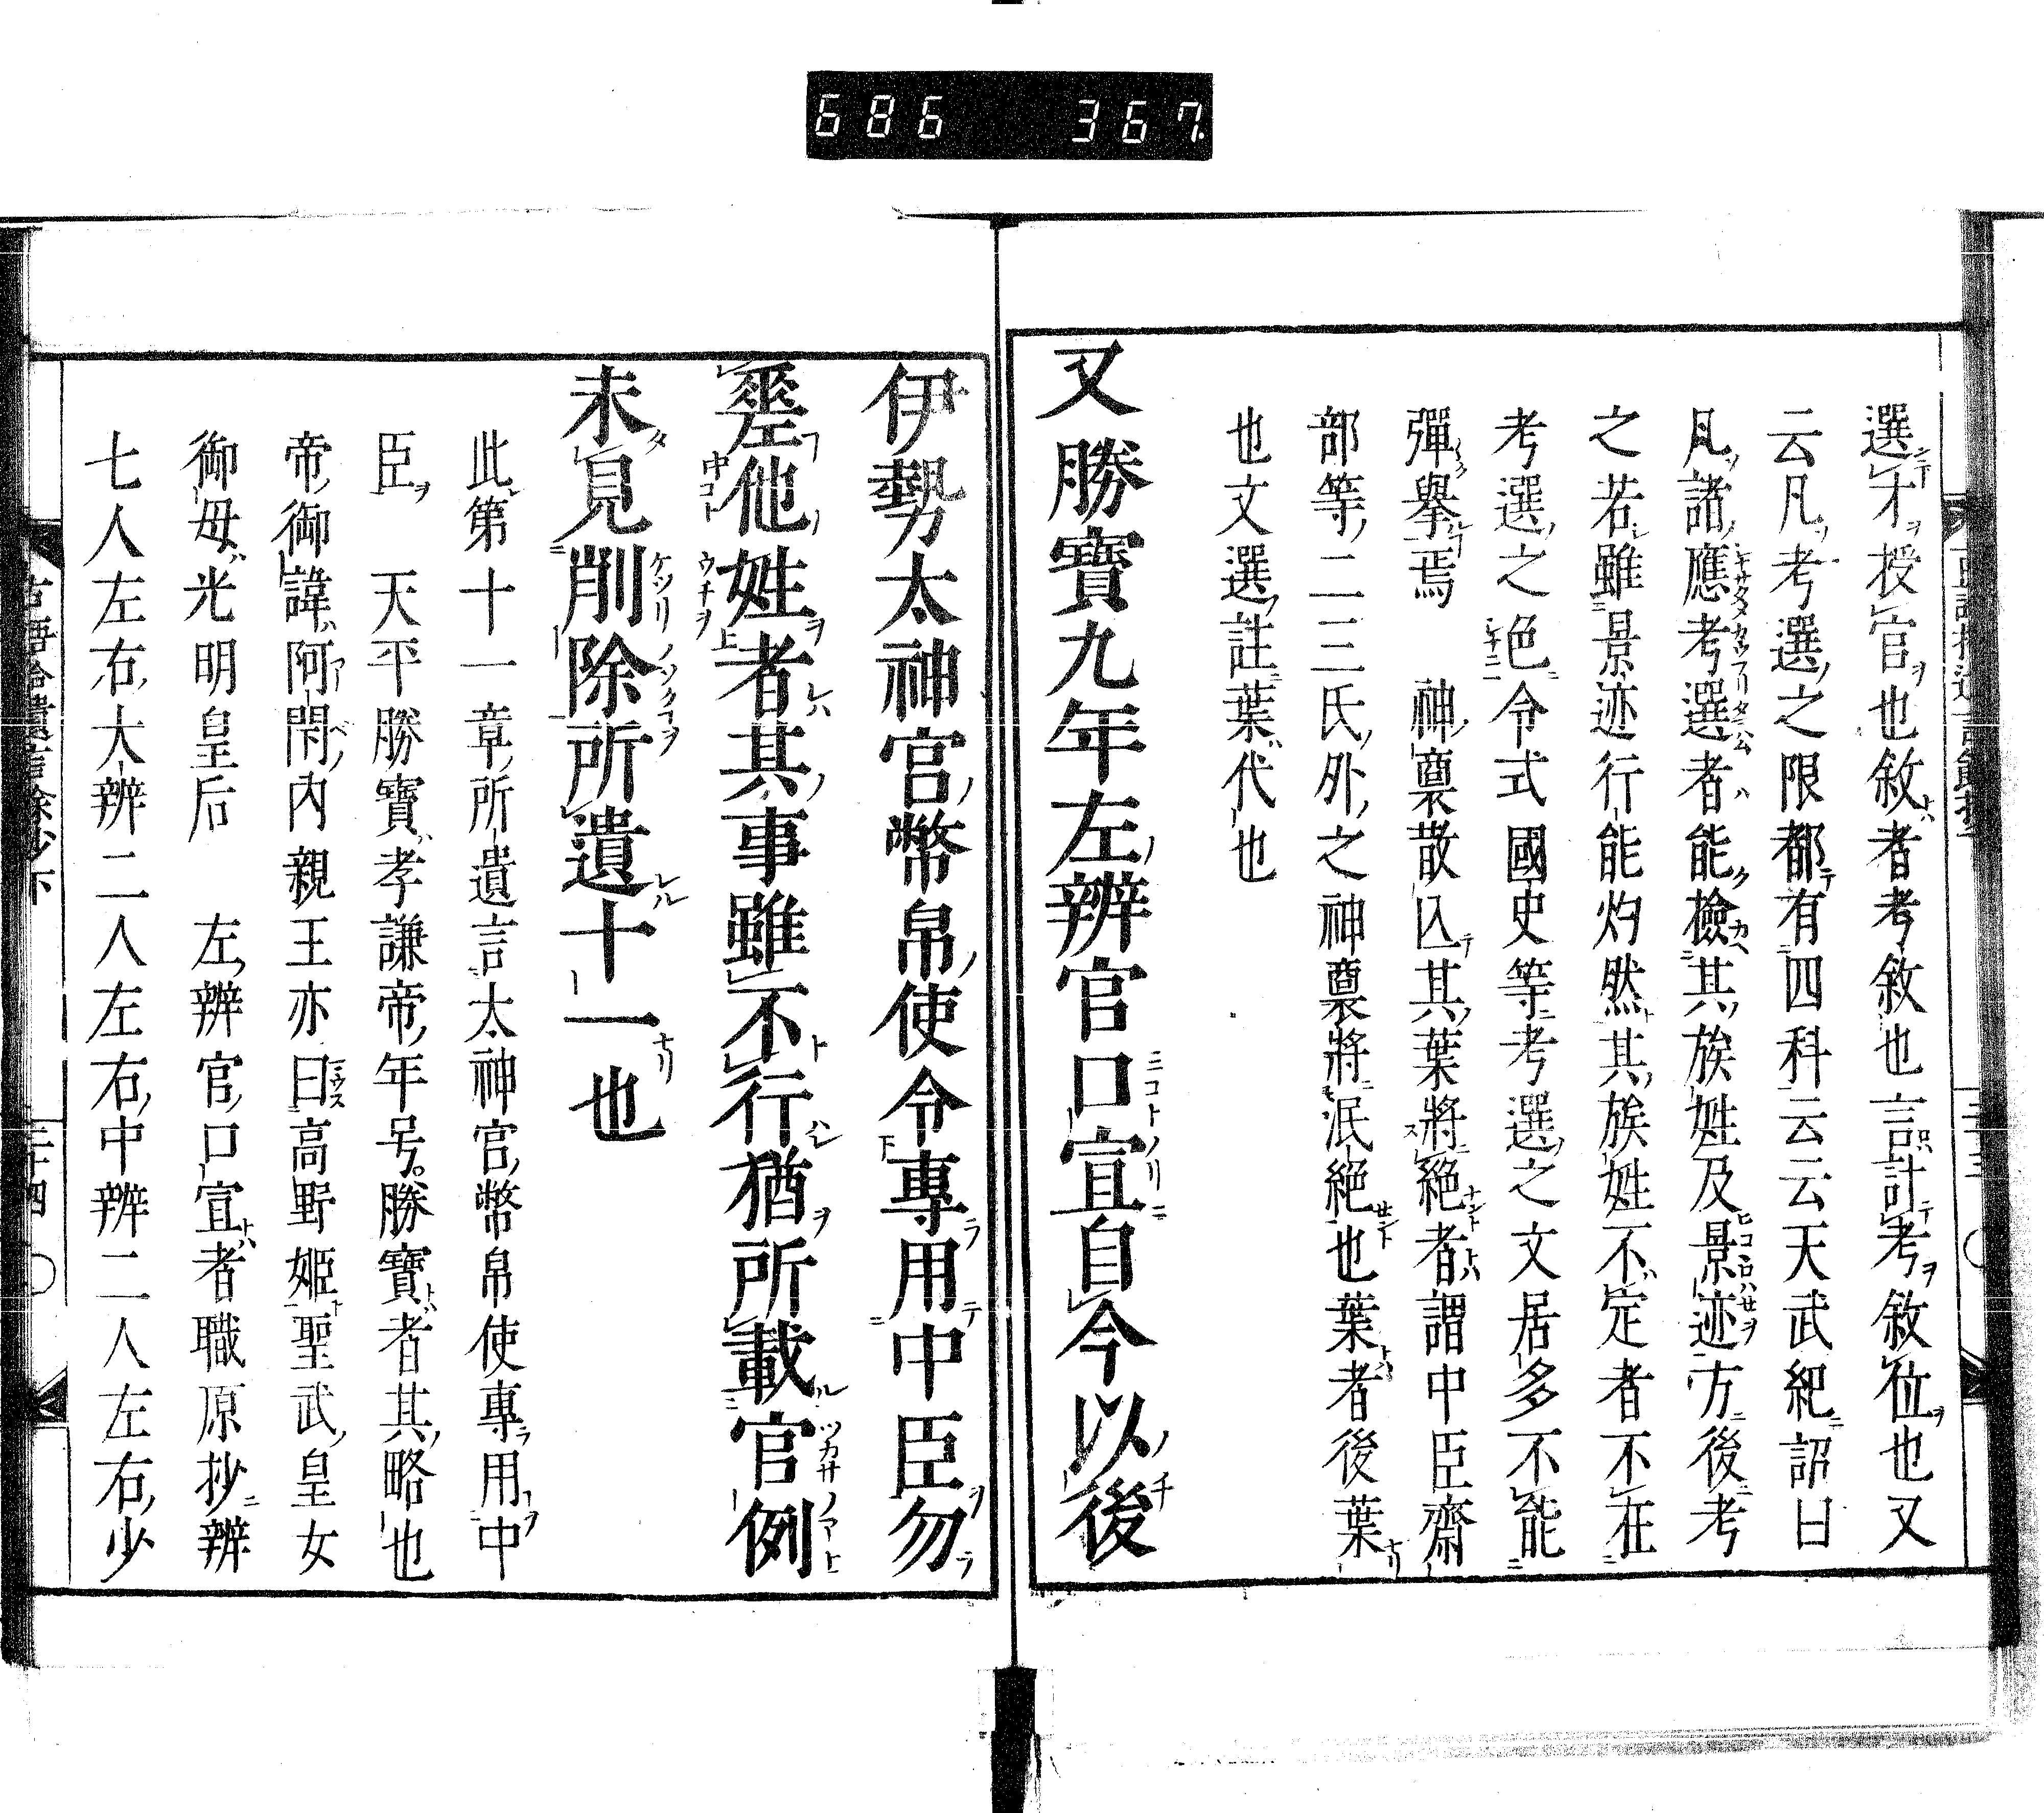 686 367
選才授官也敘者考敘也言計考敘位也又
云凡考選之限都有四科云云天武紀詔曰
凡諸應考選者能檢其族姓及景迹方後考
之若雖景迹行能灼然其族姓不定者不在
考選之色令式國史等考選之文居多不能
彈擧焉 神裔散亾其葉將絕者謂中臣齋
部等二三氏外之神裔將泯絕也葉者後葉
也文選註葉代也
又勝寶九年左辨官口宣自今以後
伊勢太神宮幣帛使令專用中臣勿
差他姓者其事雖不行猶所載官例
未見削除所遺十一也
此第十一章所遺言太神宮幣帛使專用中
臣 天平勝寶孝謙帝年号勝寶者其略也
帝御諱阿閇內親王亦曰高野姬聖武皇女
御母光明皇后 左辨官口宣者職原抄辨
七人左右大辨二人左右中辨二人左右少